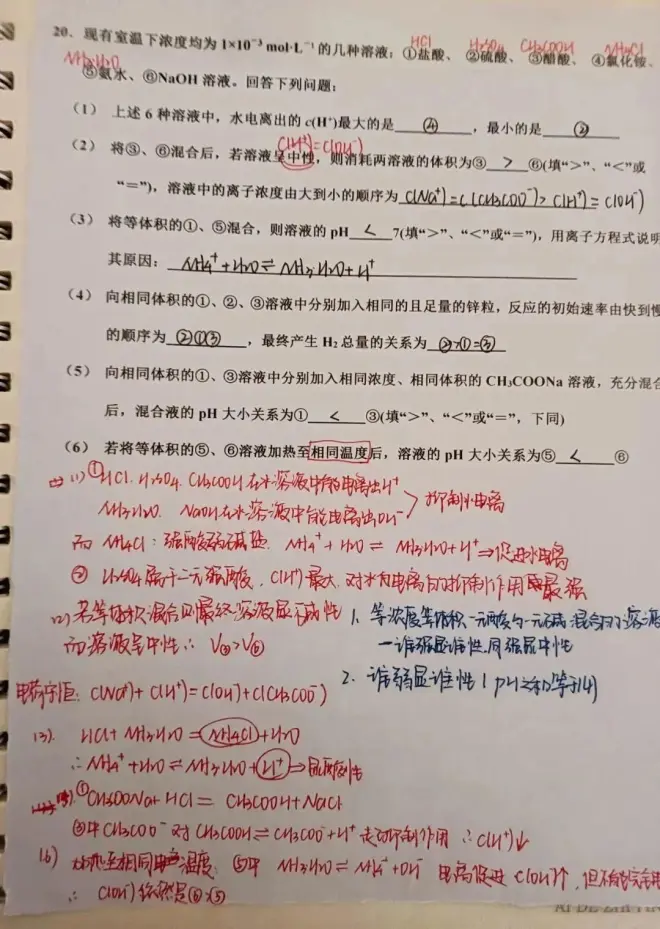 HCl H₂SO₄ CH₃COOH NH₄Cl
20、现有室温下浓度均为 1×10⁻³ mol·L⁻¹ 的几种溶液：①盐酸、②硫酸、③醋酸、④氯化铵、
NH₃·H₂O
⑤氨水、⑥NaOH 溶液。回答下列问题：
（1） 上述 6 种溶液中，水电离出的 c(H⁺)最大的是 ④ ，最小的是 ②
C(H⁺)=C(OH⁻)
（2） 将③、⑥混合后，若溶液呈中性，则消耗两溶液的体积为③ > ⑥(填“>”、“<”或
“=”)，溶液中的离子浓度由大到小的顺序为 C(Na⁺)=C(CH₃COO⁻)>C(H⁺)=C(OH⁻)
（3） 将等体积的①、⑤混合，则溶液的 pH < 7(填“>”、“<”或“=”)，用离子方程式说明
其原因： NH₄⁺+H₂O⇌NH₃·H₂O+H⁺
（4） 向相同体积的①、②、③溶液中分别加入相同的且足量的锌粒，反应的初始速率由快到慢
的顺序为 ②①③ ，最终产生 H₂ 总量的关系为 ②>①=③
（5） 向相同体积的①、③溶液中分别加入相同浓度、相同体积的 CH₃COONa 溶液，充分混合
后，混合液的 pH 大小关系为① < ③(填“>”、“<”或“=”，下同)
（6） 若将等体积的⑤、⑥溶液加热至相同温度后，溶液的 pH 大小关系为⑤ < ⑥
(1) ①HCl. H₂SO₄. CH₃COOH 在水溶液中能电离出H⁺
NH₃·H₂O. NaOH在水溶液中能电离出OH⁻ > 抑制水电离
而 NH₄Cl：强酸弱碱盐. NH₄⁺+H₂O⇌NH₃·H₂O+H⁺⇒促进水电离
② H₂SO₄属于二元强酸，C(H⁺)最大，对水的电离的抑制作用最强
(2) 若等体积混合则最终溶液显碱性
而溶液呈中性∴ V③>V⑥
1. 等浓度等体积一元酸与一元碱混合的溶液
一谁强显谁性.同强显中性
2. 谁弱显谁性(pH之和等于14)
电荷守恒：C(Na⁺)+C(H⁺)=C(OH⁻)+C(CH₃COO⁻)
(3). HCl+NH₃·H₂O=NH₄Cl+H₂O
∴NH₄⁺+H₂O⇌NH₃·H₂O+H⁺⇒显酸性
①CH₃COONa+HCl=CH₃COOH+NaCl
③中CH₃COO⁻对CH₃COOH⇌CH₃COO⁻+H⁺起到抑制作用 ∴C(H⁺)↓
(6) 加热至相同温度：⑤中 NH₃·H₂O⇌NH₄⁺+OH⁻ 电离促进 C(OH⁻)↑，但不能完全电
∴ C(OH⁻)依然是⑥>⑤